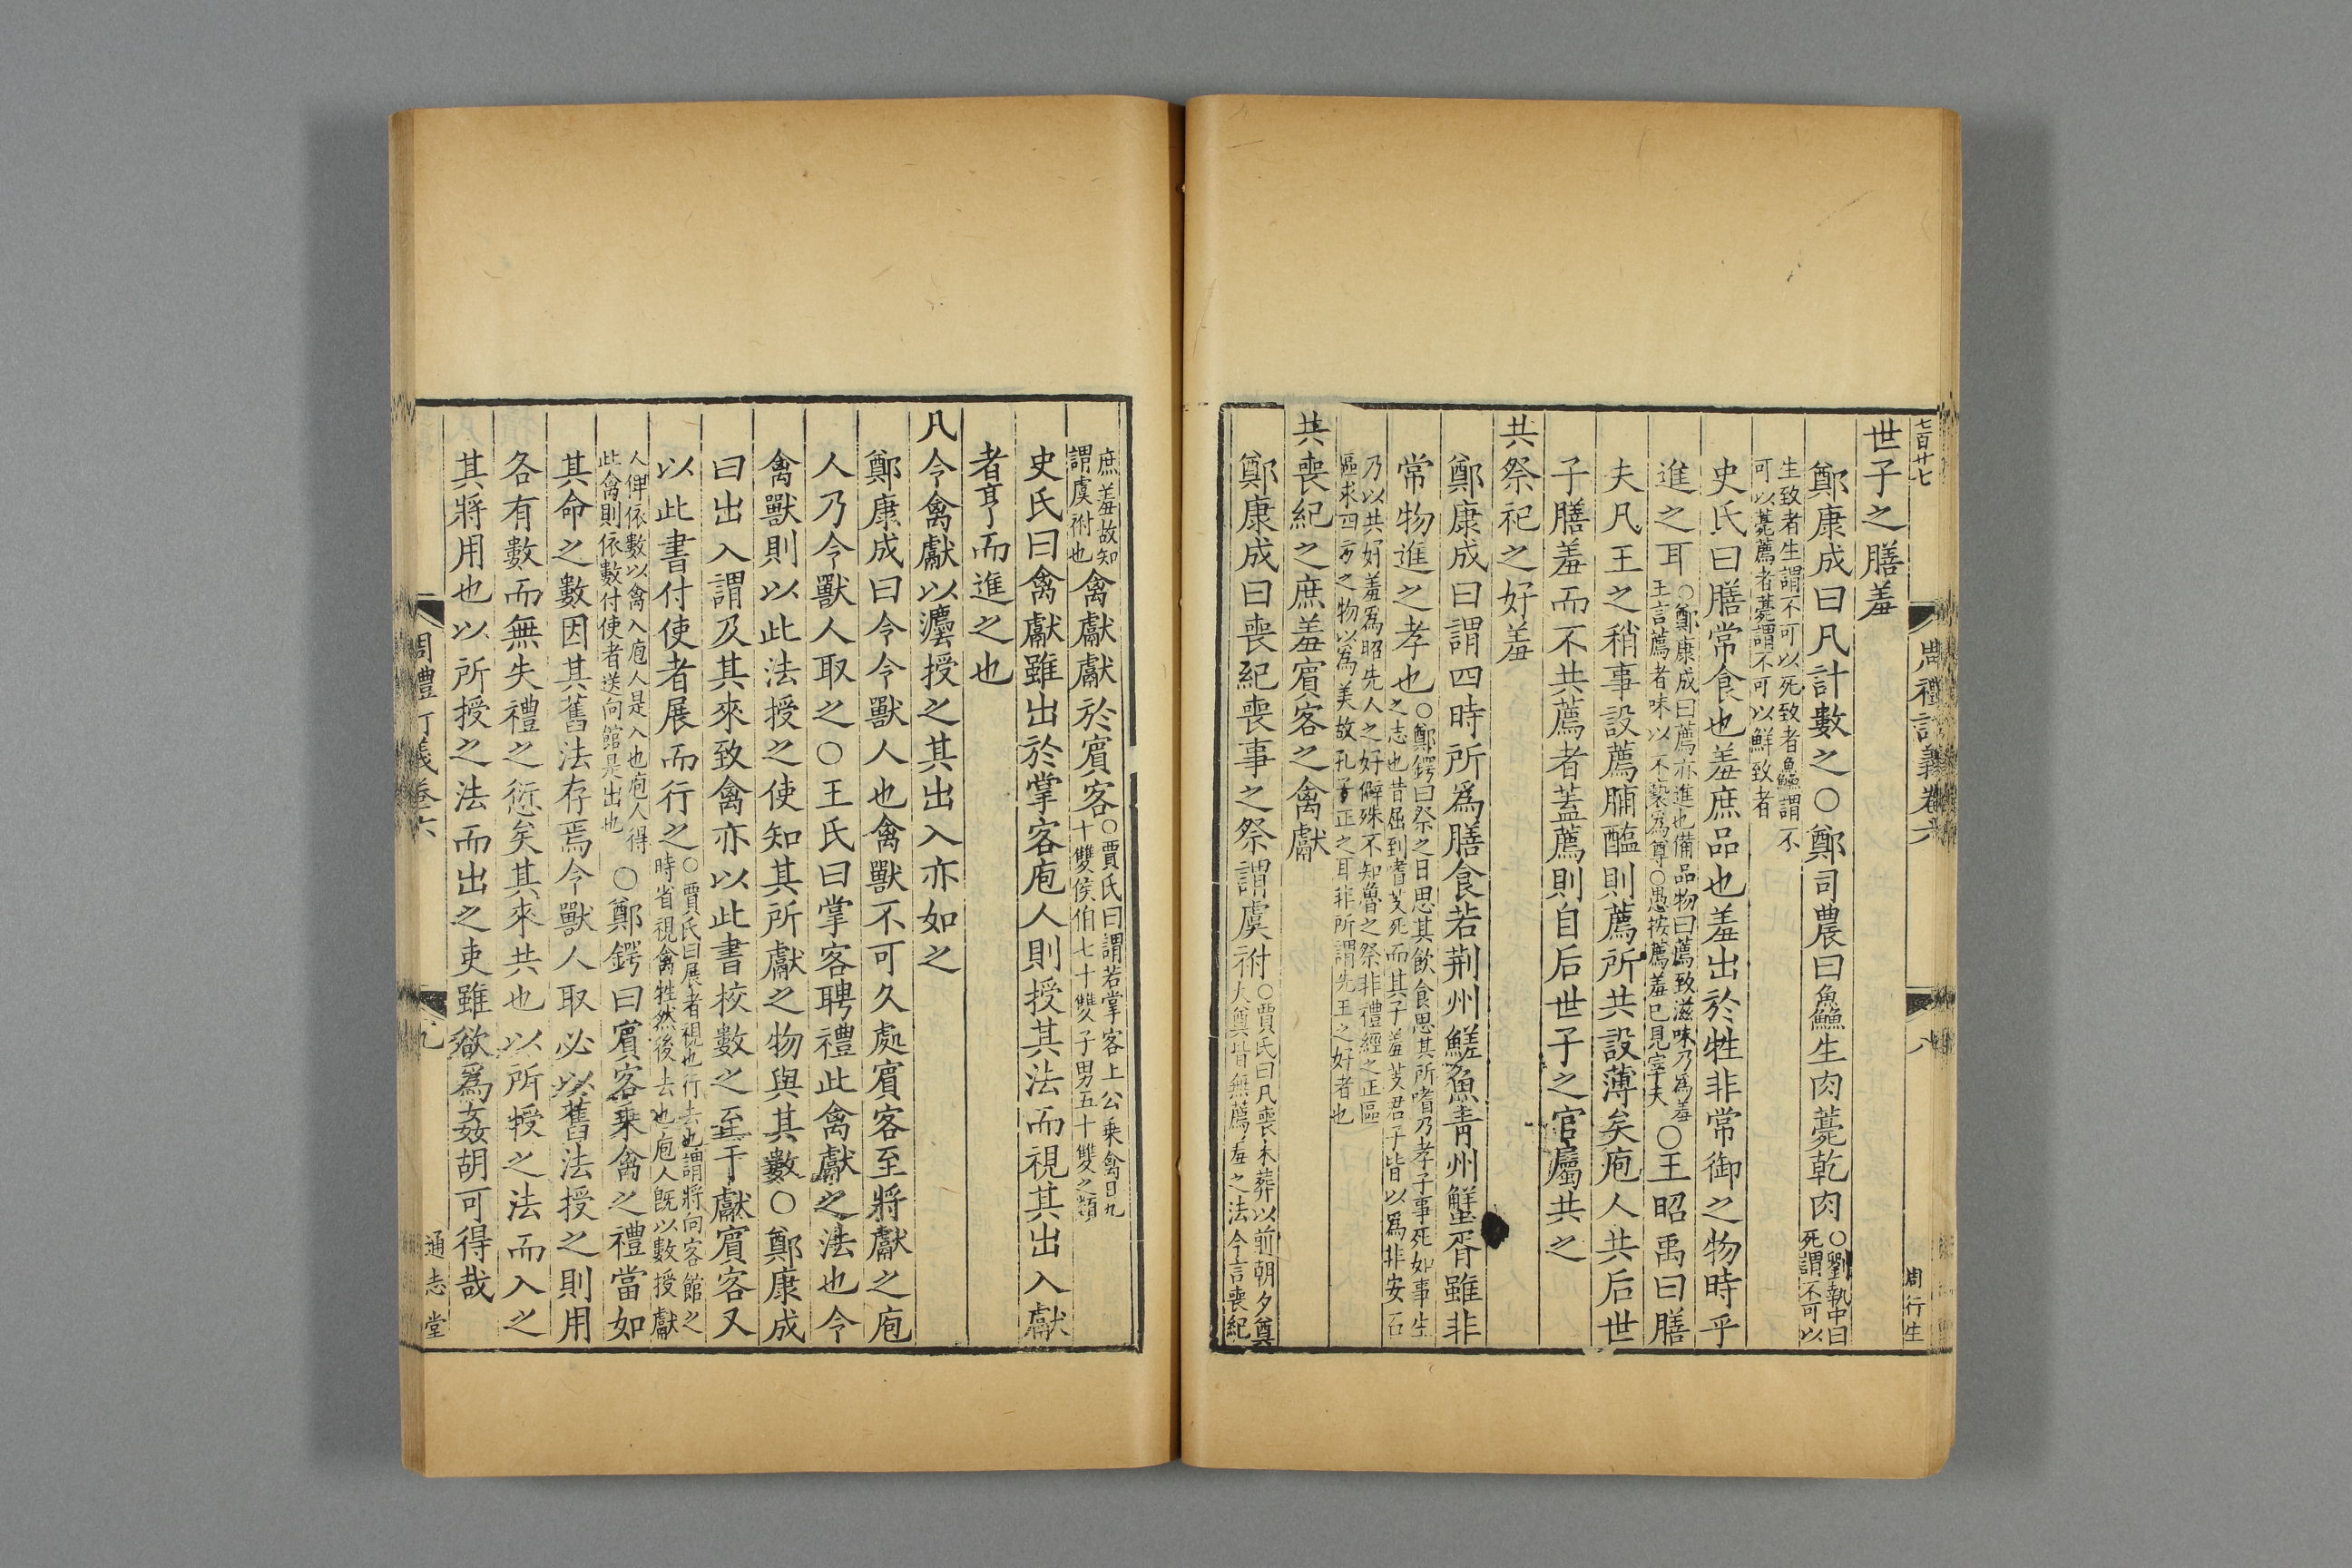 七百廿七
周禮訂義卷六
八
周行生
世子之膳羞
鄭康成曰凡計數之○鄭司農曰魚鱻生肉薧乾肉○劉執中曰死謂不可以
生致者生謂不可以死致者鱻謂不可以薧薦者薧謂不可以鮮致者
史氏曰膳常食也羞庶品也羞出於牲非常御之物時乎
進之耳○鄭康成曰薦亦進也備品物曰薦致滋味乃爲羞王言薦者味以不褻爲尊○愚按薦羞已見宰夫○王昭禹曰膳
夫凡王之稍事設薦脯醢則薦所共設薄矣庖人共后世
子膳羞而不共薦者蓋薦則自后世子之官屬共之
共祭祀之好羞
鄭康成曰謂四時所爲膳食若荆州鱃魚青州蟹胥雖非
常物進之孝也○鄭鍔曰祭之日思其飲食思其所嗜乃孝子事死如事生之志也昔屈到嗜芰死而其子羞芰君子皆以爲非安石
乃以共好羞爲昭先人之好僻殊不知魯之祭非禮經之正區區求四方之物以為美故孔子正之耳非所謂先王之好者也
共喪紀之庶羞賓客之禽獻
鄭康成曰喪紀喪事之祭謂虞祔○賈氏曰凡喪未葬以前朝夕奠大奠皆無薦羞之法今言喪紀
庶羞故知謂虞祔也禽獻獻於賓客○賈氏曰謂若掌客上公乘禽日九十雙侯伯七十雙子男五十雙之類
史氏曰禽獻雖出於掌客庖人則授其法而視其出入獻
者亨而進之也
凡令禽獻以灋授之其出入亦如之
鄭康成曰令令獸人也禽獸不可久處賓客至將獻之庖
人乃令獸人取之○王氏曰掌客聘禮此禽獻之法也令
禽獸則以此法授之使知其所獻之物與其數○鄭康成
曰出入謂及其來致禽亦以此書校數之至于獻賓客又
以此書付使者展而行之○賈氏曰展者視也行去也謂將向客館之時省視禽牲然後去也庖人旣以數授獻
人俾依數以禽入庖人是入也庖人得此禽則依數付使者送向館是出也○鄭鍔曰賓客乘禽之禮當如
其命之數因其舊法存焉令獸人取必以舊法授之則用
各有數而無失禮之愆矣其來共也以所授之法而入之
其將用也以所授之法而出之吏雖欲爲姦胡可得哉
周禮訂義卷六
九
通志堂